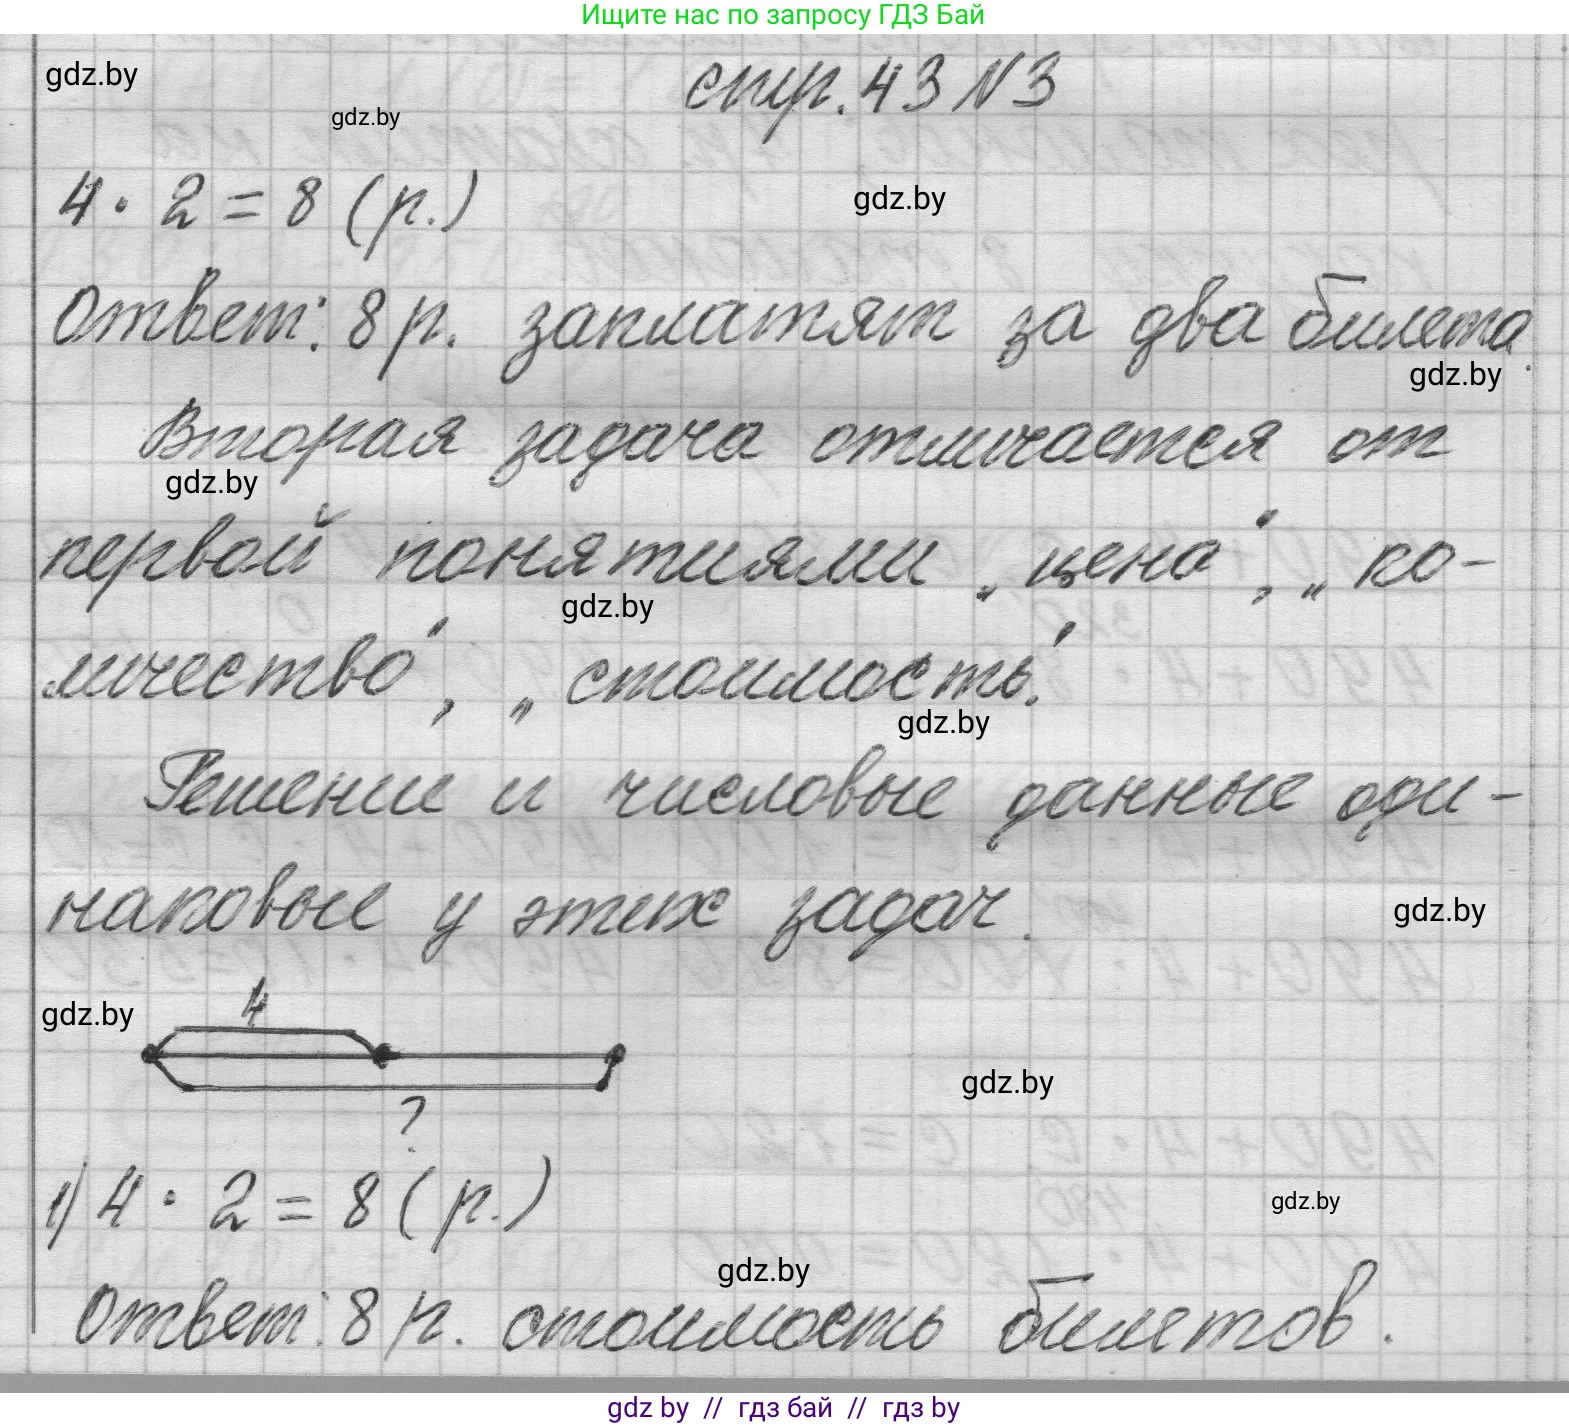 Ищите нас по запросу ГДЗ Бай
gdz.by
стр. 43 N 3
gdz.by
4 · 2 = 8 (р.)
gdz.by
Ответ: 8 р. заплатят за два билета.
gdz.by
Вторая задача отличается от
gdz.by
первой понятиями „цена“, „ко-
gdz.by
личество“, „стоимость“.
gdz.by
Решение и числовые данные оди-
наковые у этих задач.
gdz.by
4
gdz.by
gdz.by
?
1) 4 · 2 = 8 (р.)
gdz.by
gdz.by
Ответ: 8 р. стоимость билетов.
gdz.by // гдз бай // гдз by